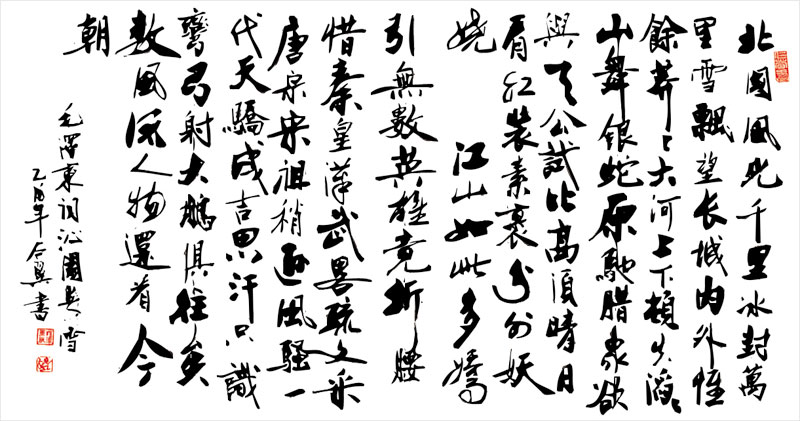 北國風光千里冰封萬
里雪飄望长城内外惟
餘莽〻大河上下頓失滔〻
山舞银蛇原馳腊象欲
與天公試比高須晴日
看红装素裹分外妖
娆 江山如此多嬌
引無數英雄竞折腰
惜秦皇漢武畧疏文采
唐宗宋祖稍逊風騷一
代天驕成吉思汗只識
彎弓射大鵰俱往矣
数風流人物還看今
朝
毛澤東词沁園春雪
乙酉年合翼書